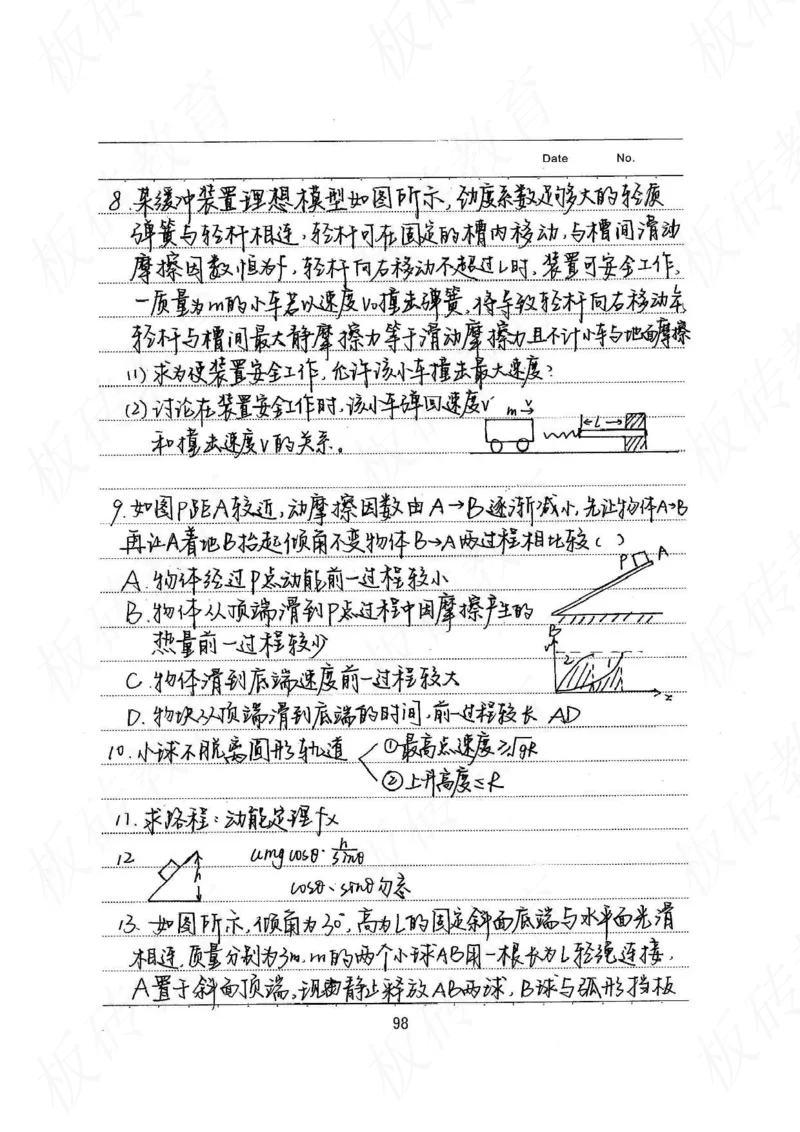 Date No.
8.某缓冲装置理想模型如图所示,劲度系数足够大的轻质
弹簧与轻杆相连,轻杆可在固定的槽内移动,与槽间滑动
摩擦因数恒为f,轻杆向右移动不超过L时,装置可安全工作,
一质量为m的小车若以速度V₀撞击弹簧,将导致轻杆向右移动
轻杆与槽间最大静摩擦力等于滑动摩擦力且不计小车与地面摩擦
(1)求为使装置安全工作,允许该小车撞击最大速度?
(2)讨论在装置安全工作时,该小车弹回速度V'
m v
L
和撞击速度V的关系。
9.如图P距A较近,动摩擦因数由A→B逐渐减小,先让物体A→B
再让A着地B抬起倾角不变物体B→A两过程相比较( )
P A
A.物体经过P点动能前一过程较小
B.物体从顶端滑到P点过程中因摩擦产生的
B
热量前一过程较少
2 1
C.物体滑到底端速度前一过程较大
x
D.物块从顶端滑到底端的时间,前一过程较长 AD
10.小球不脱离圆形轨道 ①最高点速度≥√gR
②上升高度≤R
11.求路程:动能定理fx
12 h umgcosθ·h/sinθ
cosθ、sinθ勿忘
13.如图所示,倾角为30°,高为L的固定斜面底端与水平面光滑
相连,质量分别为3m,m的两个小球AB用一根长为L轻绳连接,
A置于斜面顶端,现静止释放AB两球,B球与弧形挡板
98
板砖教育